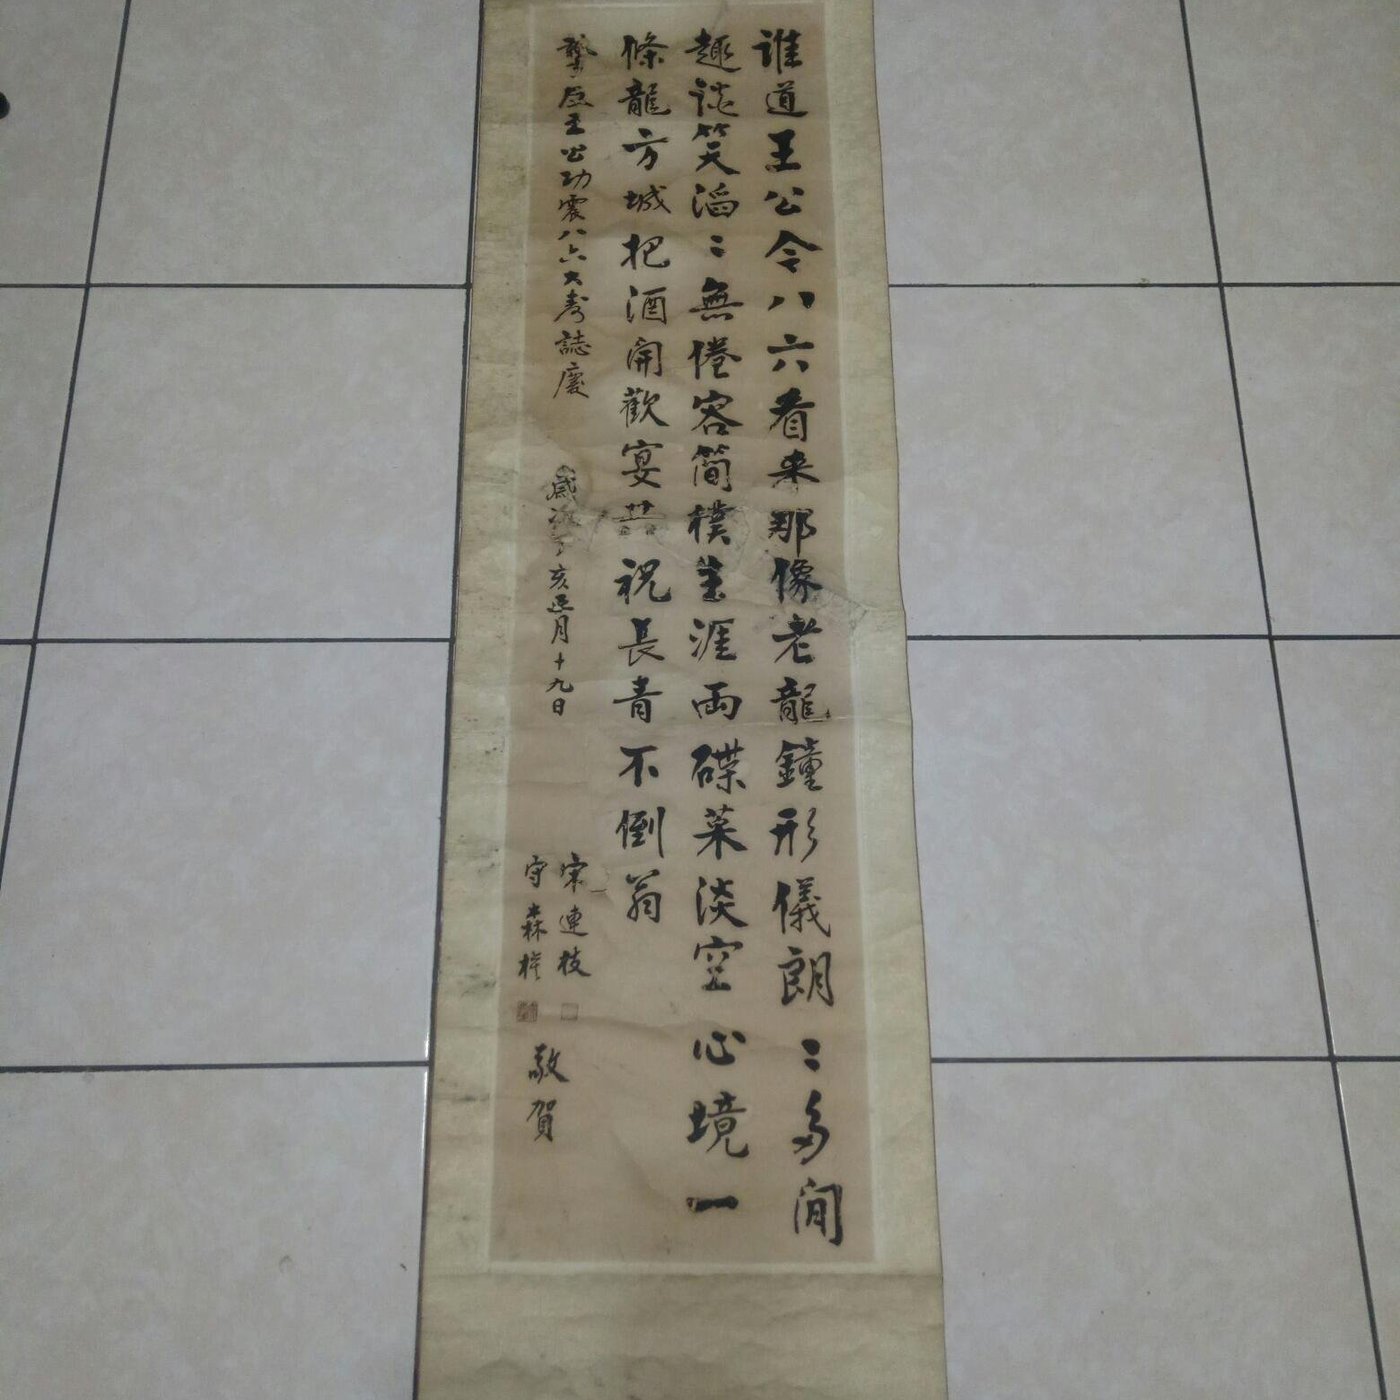 誰道王公今八六看来那像老龍鐘形儀朗〻多閒
趣談笑滔〻無倦容简樸生涯両碟菜淡空心境一
條龍方城把酒開歡宴共祝長青不倒翁
王公功震八六大寿誌慶
歲次丁亥 月十九日
宋連枝
守森
敬賀